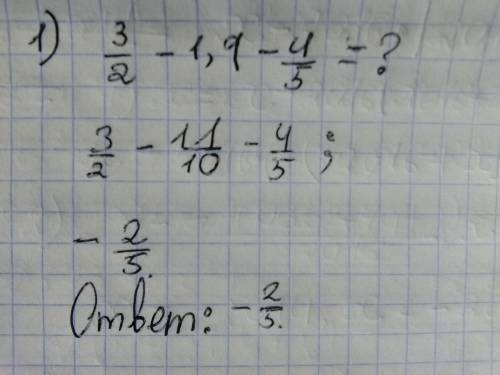 1) 3/2 - 1,9 - 4/5 = ?
3/2 - 11/10 - 4/5 ;
- 2/5.
Ответ: - 2/5.